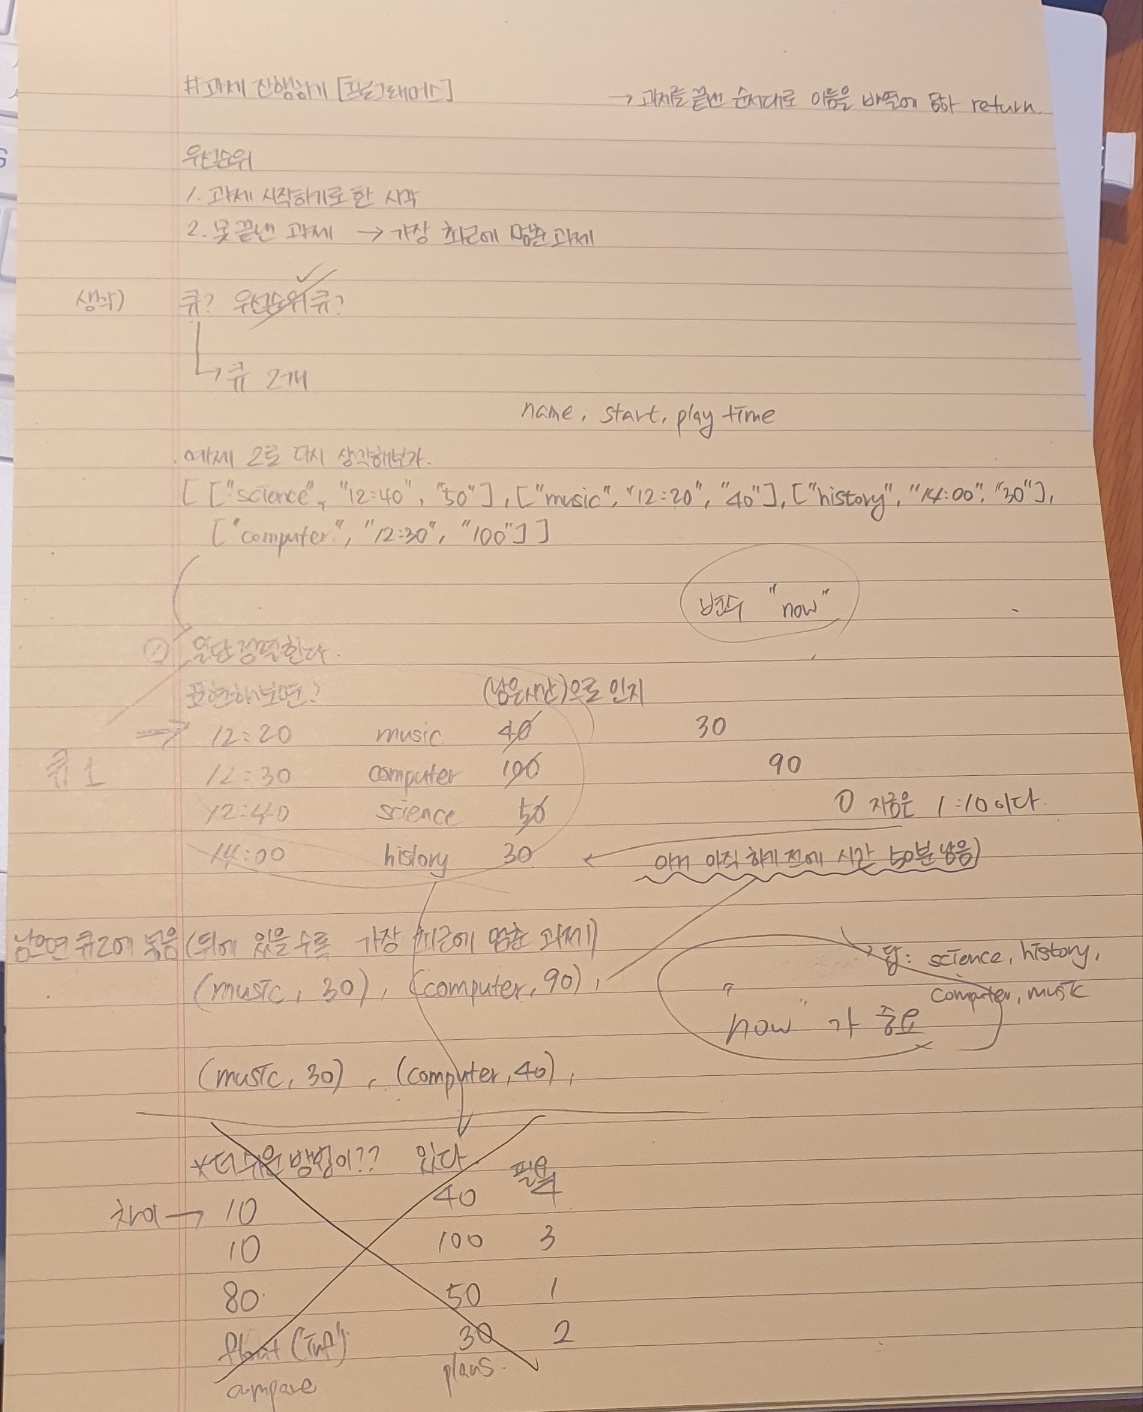 #과제 진행하기 [프로그래머스]
→ 과제를 끝낸 순서대로 이름을 배열에 담아 return.
우선순위
1. 과제 시작하기로 한 시각
2. 못 끝낸 과제 → 가장 최근에 멈춘 과제
생각) 큐? 우선순위큐?
↳ 큐 2개
name, start, play time
예제 2로 다시 생각해보자.
[ ["science", "12:40", "50"], ["music", "12:20", "40"], ["history", "14:00", "30"],
["computer", "12:30", "100"] ]
변수 "now"
일단 정렬한다.
표현해보면? (남은시간)으로 인지
→ 12:20 music 40 30
큐 1 12:30 computer 100 90
12:40 science 50 ① 지금은 1:10이다
14:00 history 30 ← 아직 하기 전에 시간 50분 남음)
남으면 큐2에 넣음 (뒤에 있을수록 가장 최근에 멈춘 과제)
답: science, history,
computer, music
(music, 30), (computer, 90),
"now" 가 중요
(music, 30), (computer, 40),
*더 쉬운 방법이?? 있다. 필요
차이 → 10 40 4
10 100 3
80 50 1
float('inf') 30 2
compare plans.